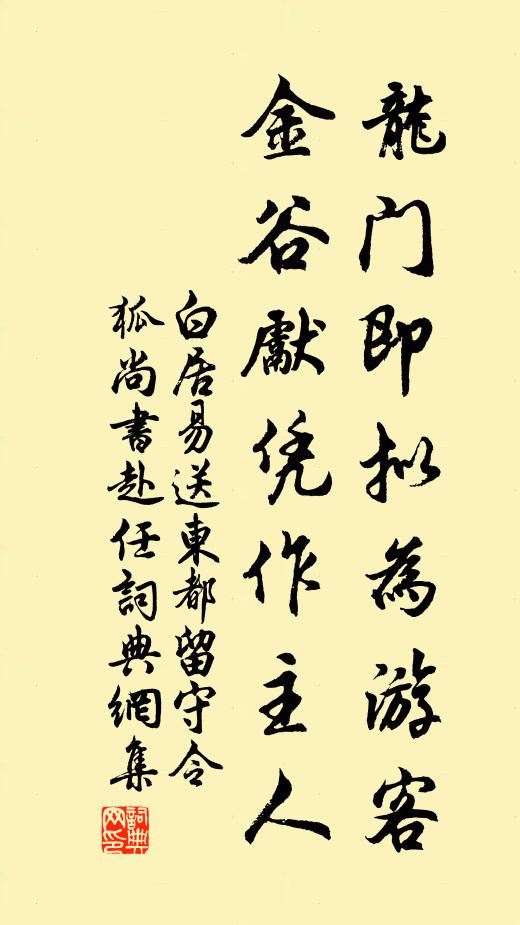 龍门即拟為游客
金谷獻凭作主人
白居易送東都留守令
狐尚書赴任詞典網集
詞典
网印